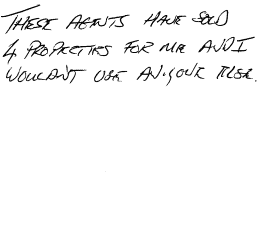 THESE AGENTS HAVE SOLD
4 PROPERTIES FOR ME AND I
WOULDN'T USE ANYONE ELSE.